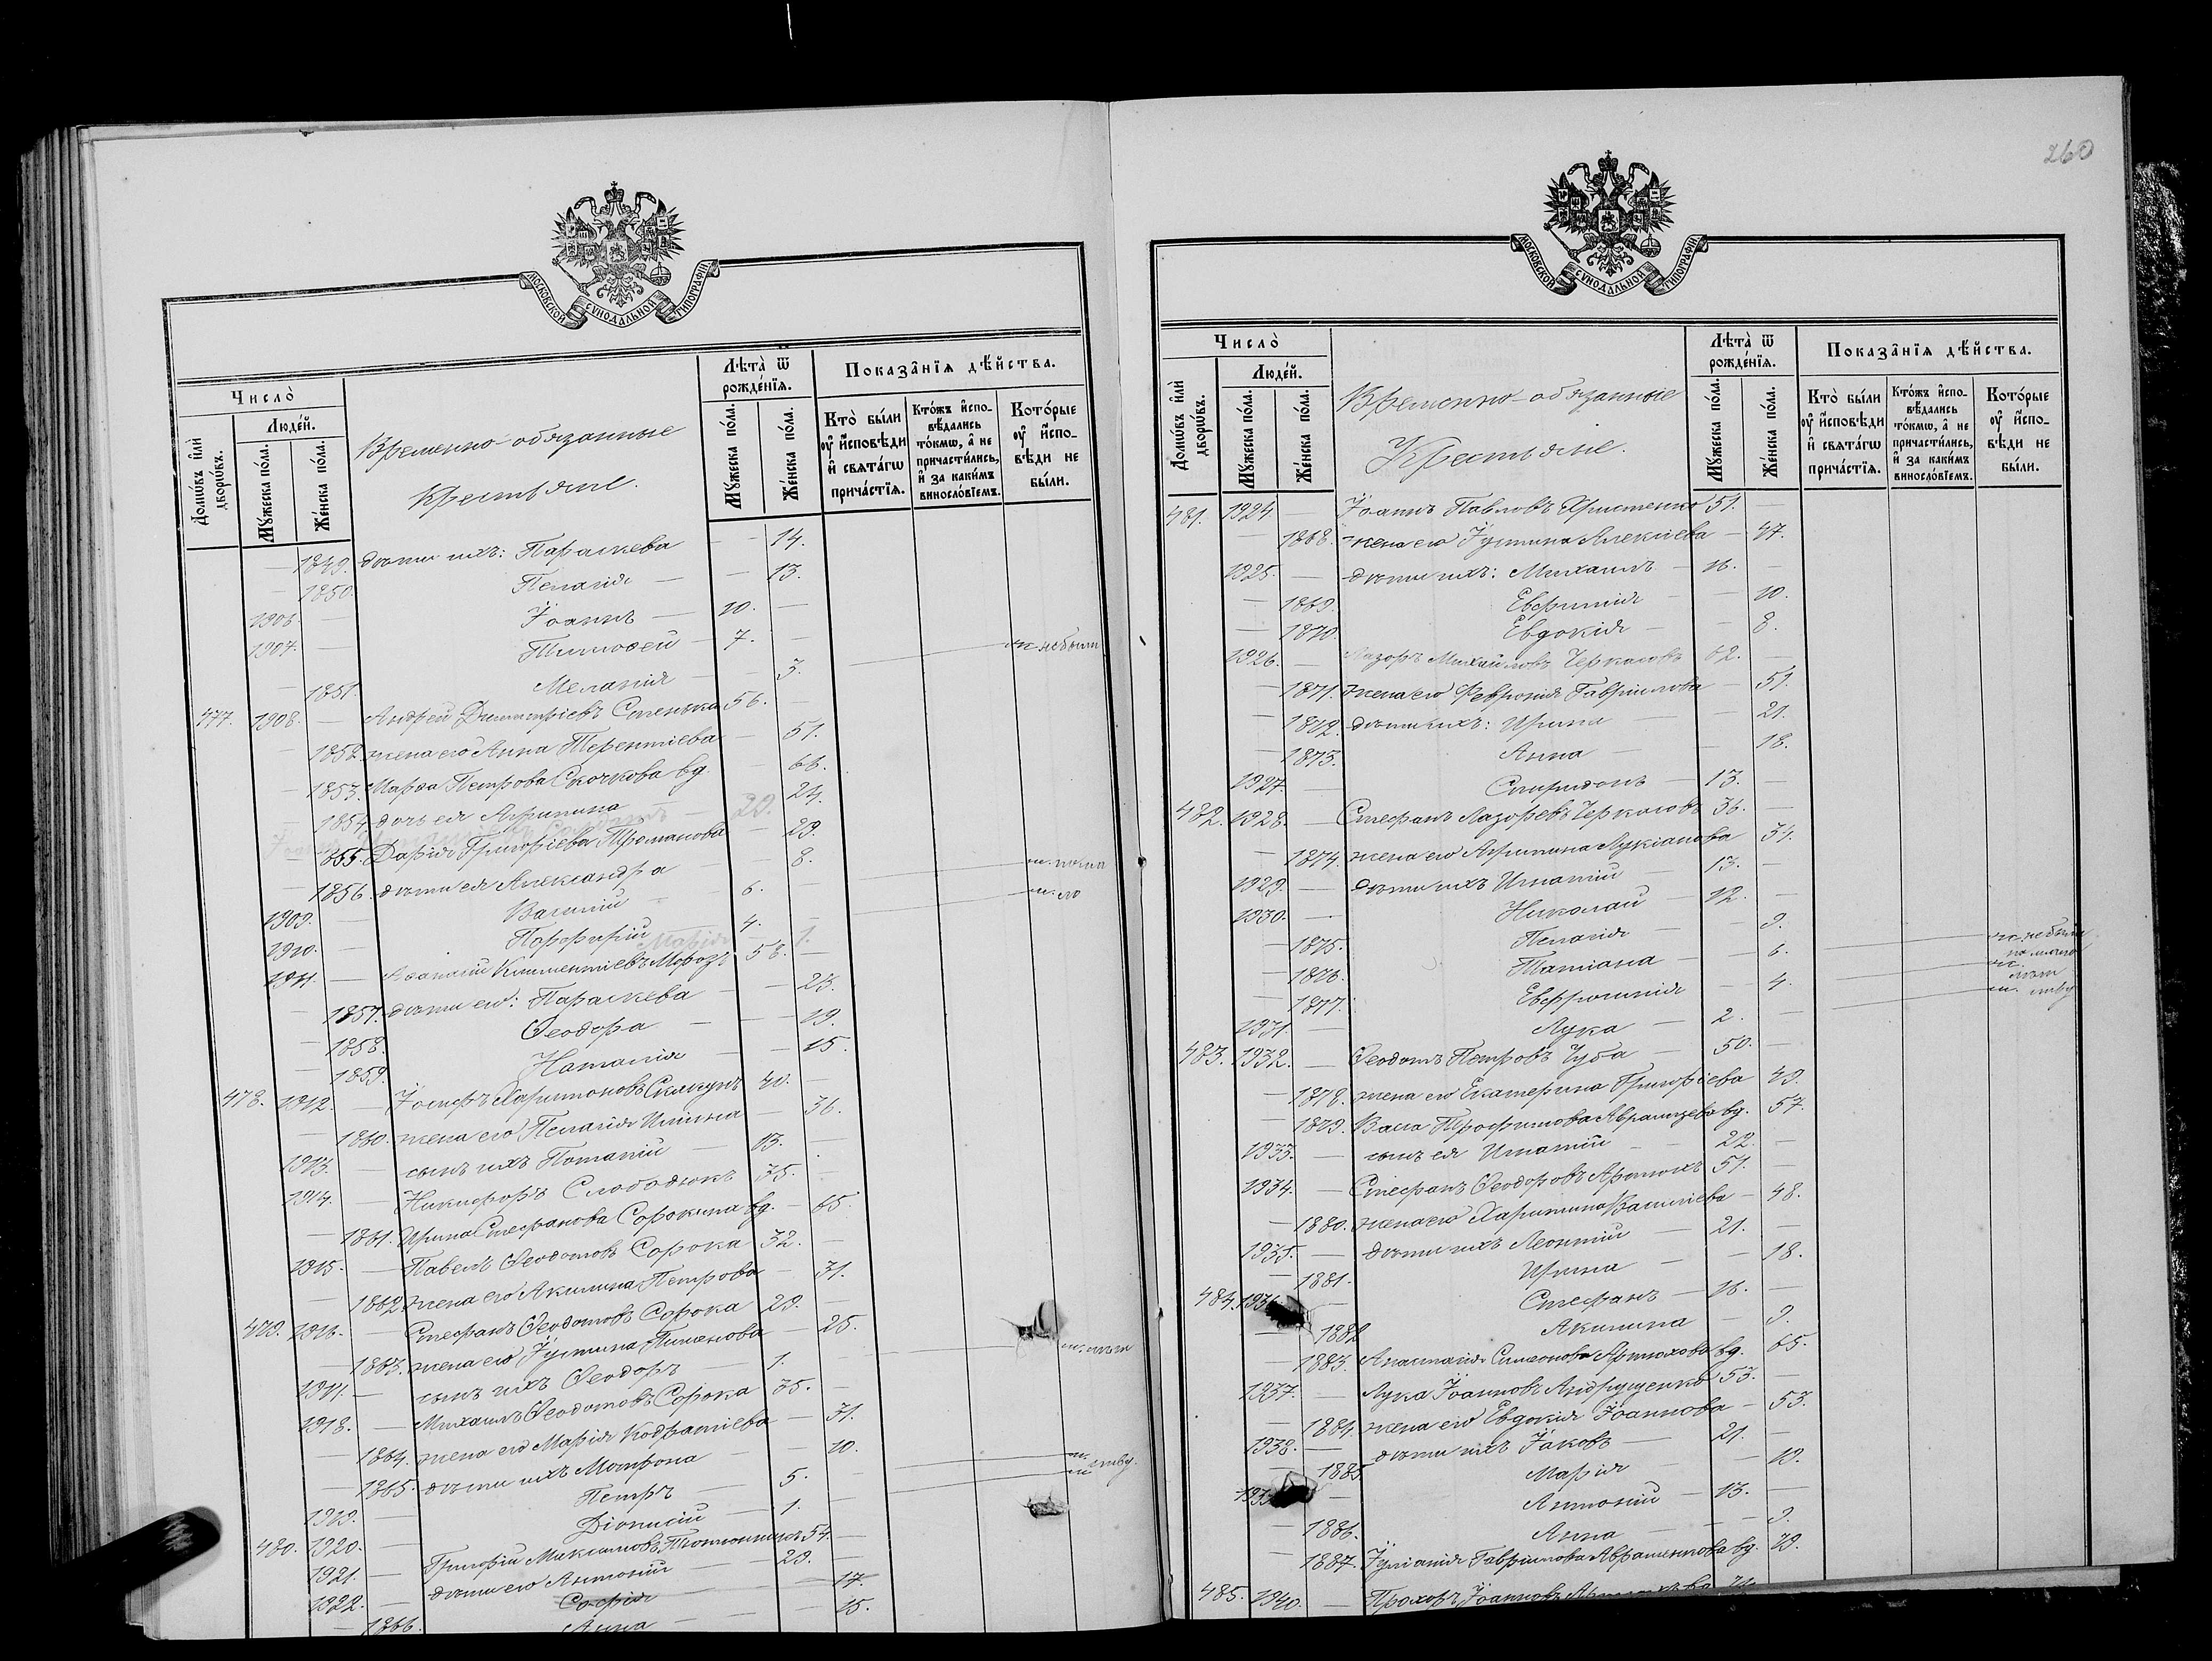 260
МОСКОВСКОЙ СѴНОДАЛЬНОЙ ТИПОГРАФІИ
Число̀
Домѡ́въ и҆лѝ дворѡ́въ.
Люде́й.
Мꙋ́жеска по́ла.
Же́нска по́ла.
Временно-обязанные
Крестьяне.
Лѣта̀ ѿ рожде́нїѧ.
Мꙋ́жеска по́ла.
Же́нска по́ла.
Показа̑нїѧ дѣ́йства.
Кто̀ бы́ли ᲂу҆ и҆́сповѣди и҆ свѧта́гѡ прича́стїѧ.
Кто́жъ и҆спо-вѣ́дались то́кмѡ, а҆ не причасти́лись, и҆ за каки́мъ винослові́емъ.
Кото́рые ᲂу҆ и҆спо-вѣди не бы́ли.
— 1849. дѣти ихъ: Параскева — — 14.
— 1850. Пелагія — — 13.
1906. — Іоаннъ — 10. —
1907. — Тимоѳей — 7. — не были
— 1851. Меланія — — 3.
477. 1908. — Андрей Димитріевъ Стенька 56. —
— 1852. жена его Анна Терентіева — 51.
— 1853. Марѳа Петрова Скочкова вд. — 66.
— 1854. дочь ея Агрипина — 24.
— 1855. Дарія Григоріева Троманова — 29.
— 1856. дѣти ея Александра — 8.
1909. — Василій — 6. —
1910. — Порфирій — 4. —
Марія 1.
1911. — Аѳанасій Климентіевъ Морозъ 58. —
— 1857. дѣти его: Параскева — — 23.
— 1858. Ѳеодора — — 19.
— 1859. Наталія — — 15.
478. 1912. — Іосифъ Харитоновъ Скакунъ 40. —
— 1860. жена его Пелагія Ильина — 36.
1913. — сынъ ихъ Потапій — 13. —
1914. — Никифоръ Слободюкъ 35.
— 1861. Ирина Стефанова Сорокина вд. — 65.
1915. — Павелъ Ѳеодотовъ Сорока 32. —
— 1862. жена его Акилина Петрова — 31.
479. 1916. — Стефанъ Ѳеодотовъ Сорока 29. —
— 1863. жена его Іустина Пименова — 25.
1917. — сынъ ихъ Ѳеодоръ — 1. —
1918. — Михаилъ Ѳеодотовъ Сорока 35. —
— 1864. жена его Марія Кодратіева — 31.
— 1865. дѣти ихъ Матрона — 10.
1919. — Петръ — 5. —
480. 1920. — Діонисій — 1. —
1921. — Григорій Максимовъ 54. —
1922. — дѣти его Антоній — 29. —
Софія — 17.
— 1866. Анна — 15.
МОСКОВСКОЙ СѴНОДАЛЬНОЙ ТИПОГРАФІИ
Число̀
Домѡ́въ и҆лѝ дворѡ́въ.
Люде́й.
Мꙋ́жеска по́ла.
Же́нска по́ла.
Временно-обязанные
Крестьяне.
Лѣта̀ ѿ рожде́нїѧ.
Мꙋ́жеска по́ла.
Же́нска по́ла.
Показа̑нїѧ дѣ́йства.
Кто̀ бы́ли ᲂу҆ и҆́сповѣди и҆ свѧта́гѡ прича́стїѧ.
Кто́жъ и҆спо-вѣ́дались то́кмѡ, а҆ не причасти́лись, и҆ за каки́мъ винослові́емъ.
Кото́рые ᲂу҆ и҆спо-вѣди не бы́ли.
481. 1924. — Іоаннъ Павловъ Христенко 51. —
— 1868. жена его Іустина Алексіева — 47.
1925. — дѣти ихъ: Михаилъ — 16. —
— 1869. Евфимія — — 10.
— 1870. Евдокія — — 8.
1926. — Лазоръ Михайловъ Черкасовъ 62. —
— 1871. жена его Февронія Гавріилова — 51.
— 1872. дѣти ихъ: Ирина — 21.
— 1873. Анна — — 18.
1927. — Спиридонъ — 13. —
482. 1928. — Стефанъ Лазоревъ Черкасовъ 36. —
— 1874. жена его Агрипина Лукіанова — 31.
1929. — дѣти ихъ Игнатій — 13. —
1930. — Николай — 12. —
— 1875. Пелагія — — 9.
— 1876. Татіана — — 6.
— 1877. Евфросинія — 4.
1931. — Лука — 2. —
483. 1932. — Ѳеодотъ Петровъ Чуба — 50. —
— 1878. жена его Екатерина Григоріева 49.
— 1879. Васса Трофимова Аврамцева вд. 57.
1933. — сынъ ея Игнатій — 22. —
1934. — Стефанъ Ѳеодоровъ Артюхъ 51. —
— 1880. жена его Харитина Василіева — 48.
1935. — дѣти ихъ Леонтій — 21. —
— 1881. Ирина — — 18.
484. 1936. — Стефанъ — 16. —
— 1882. Акилина — 9.
— 1883. Анастасія Симеонова Артюхова вд. 65.
1937. — Лука Іоанновъ Андрущенко 53. —
— 1884. жена его Евдокія Іоаннова — 53.
1938. — дѣти ихъ Іаковъ — 21. —
— 1885. Марія — — 19.
193 — Антоній — 13. —
— 1886. Анна — — 9.
— 1887. Іуліанія Гавріилова Авраменкова вд. 79.
485. 1940. — Прохоръ Іоанновъ